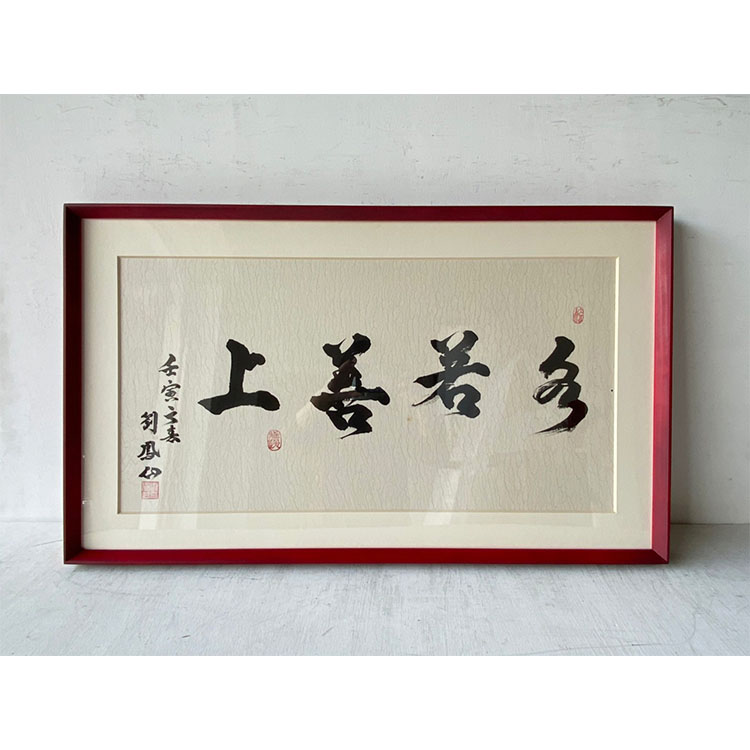 上善若水
壬寅之春
劉鳳仙